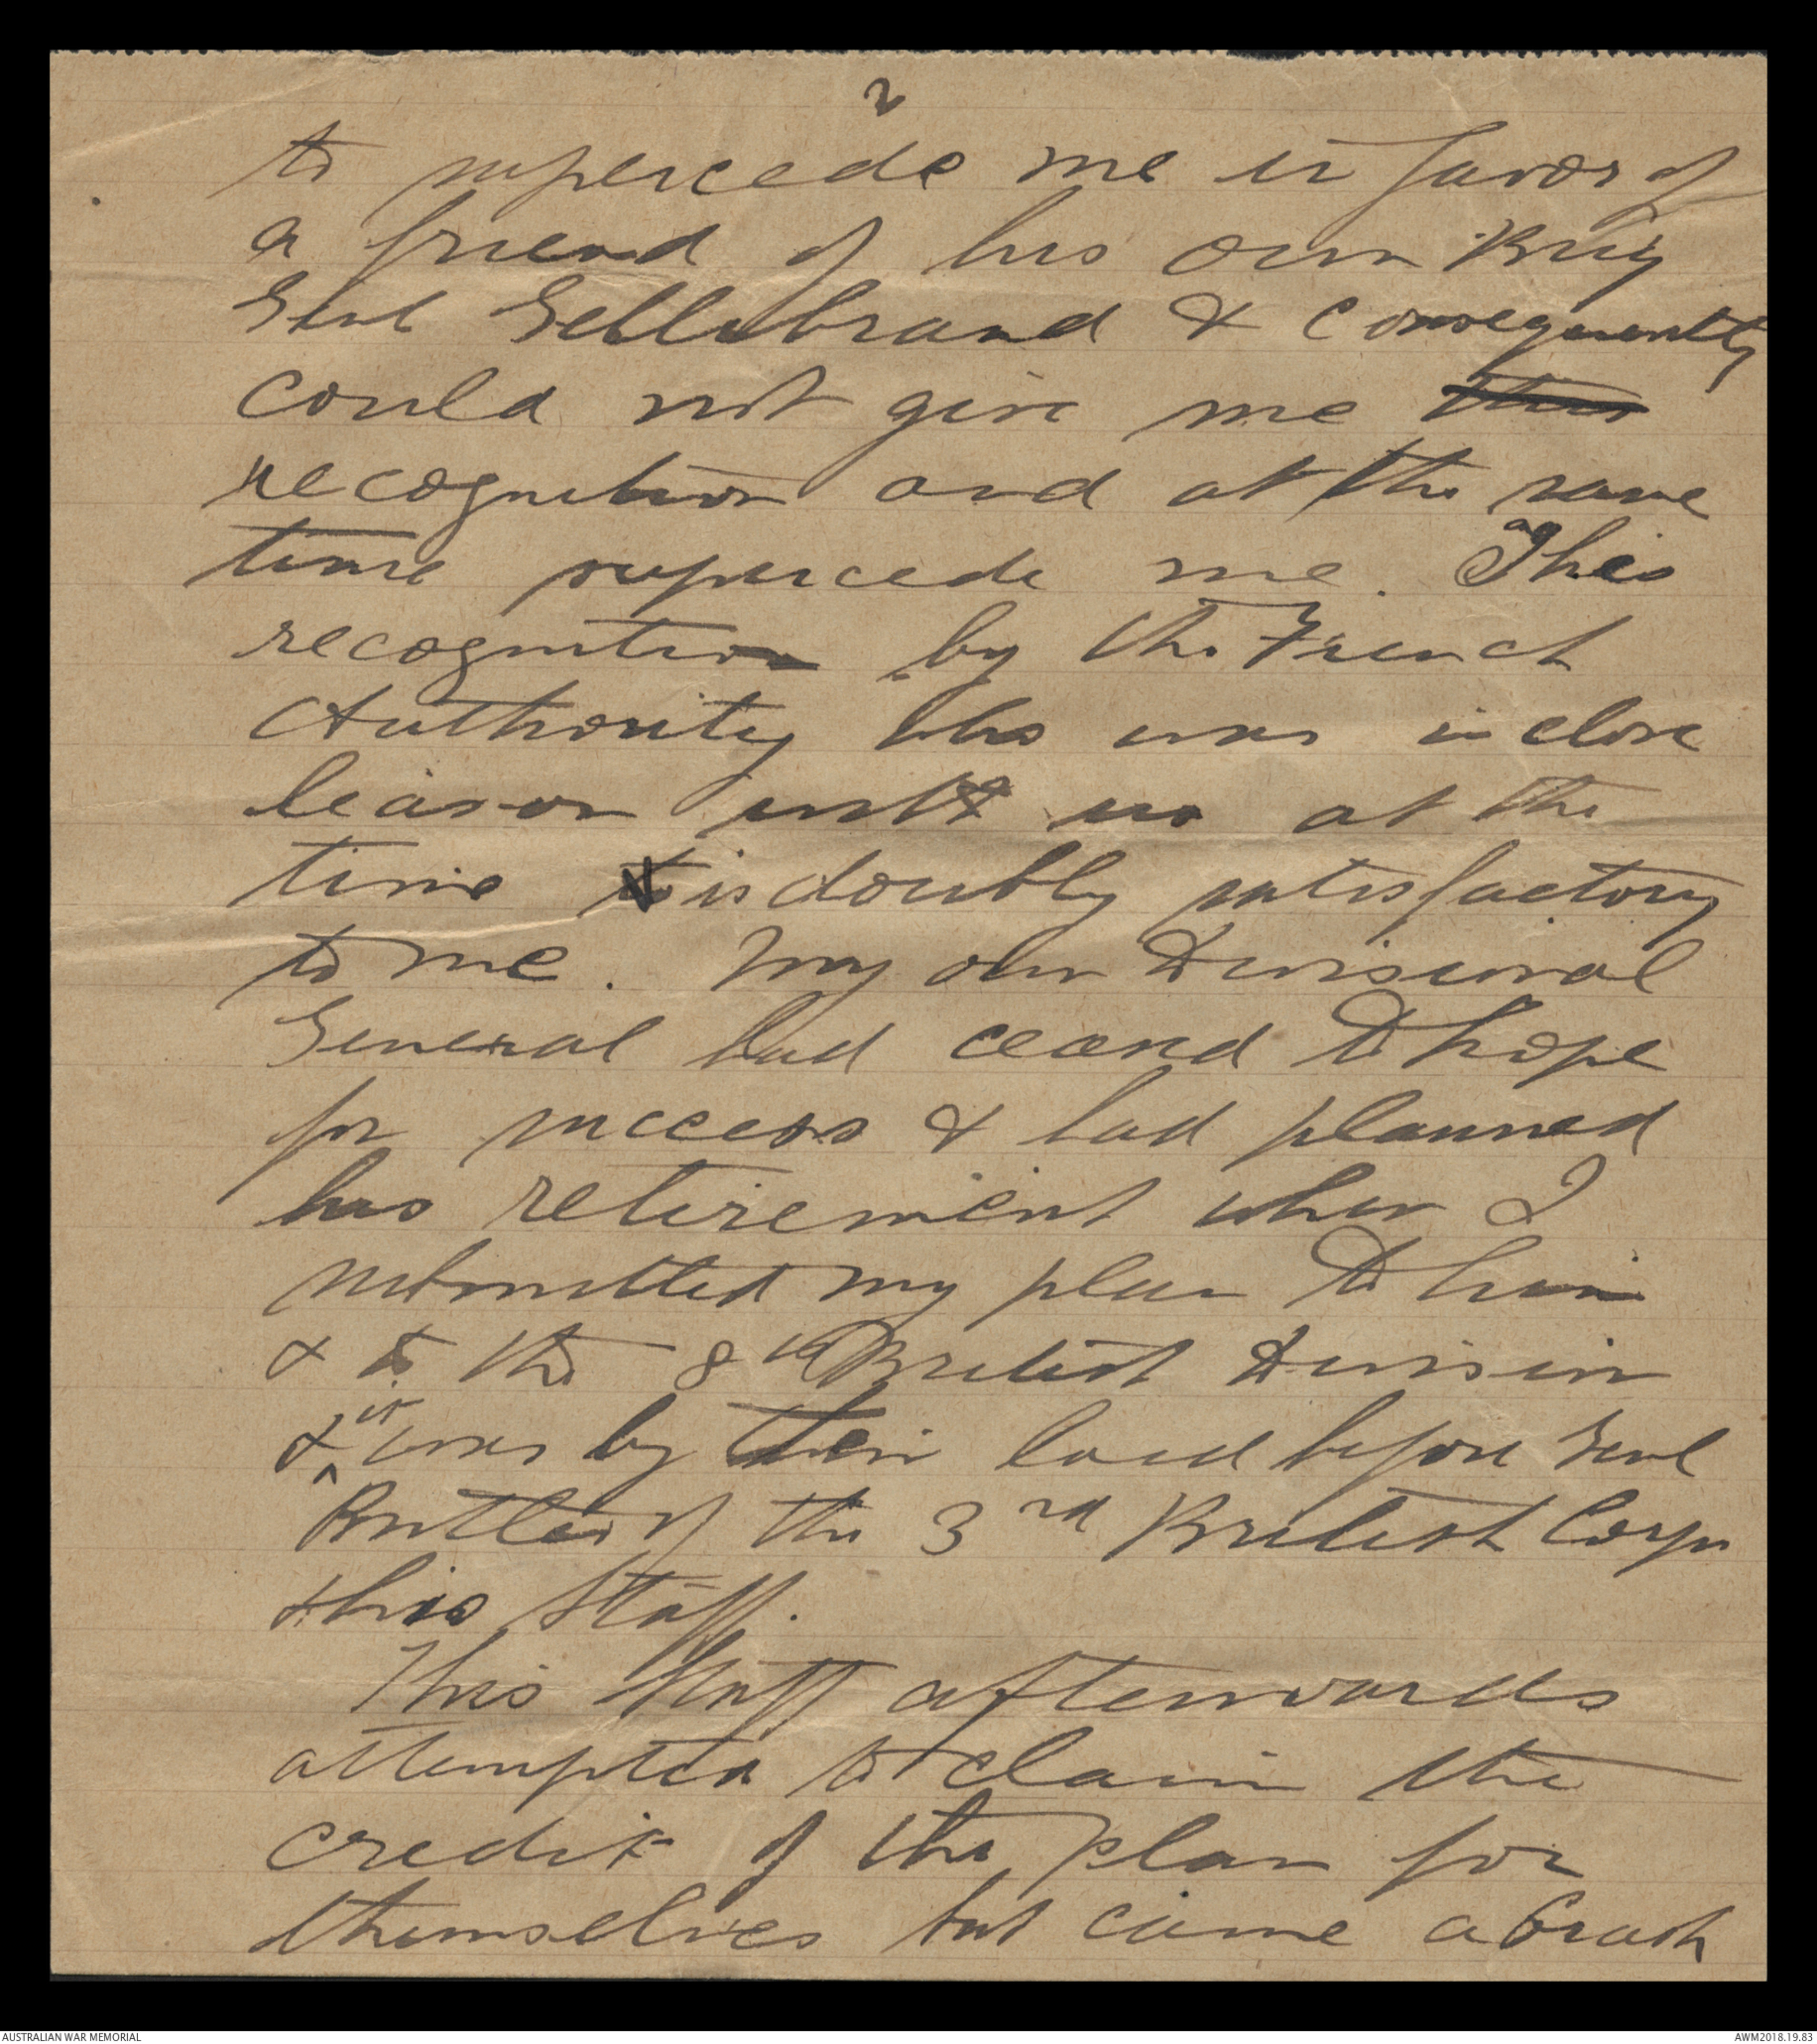 2
to supercede me in favor of
a friend of his own Brig
Genl Gellibrand & consequently
could not give me this
recognition and at the same
time supercede me. This
recognition by the French
Authority who was in close
leason with us at the
time is doubly satisfactory
to me. My own Divisional
General had ceased to hope
for success & had planned
his retirement when I
submitted my plan to him
& to the 8th British Division
& it was by them laid before Genl
Butler of the 3rd British Corps
& his Staff.
This Staff afterwards
attempted to claim the
credit of the plan for
themselves but came a crash
AUSTRALIAN WAR MEMORIAL
AWM2018.19.83